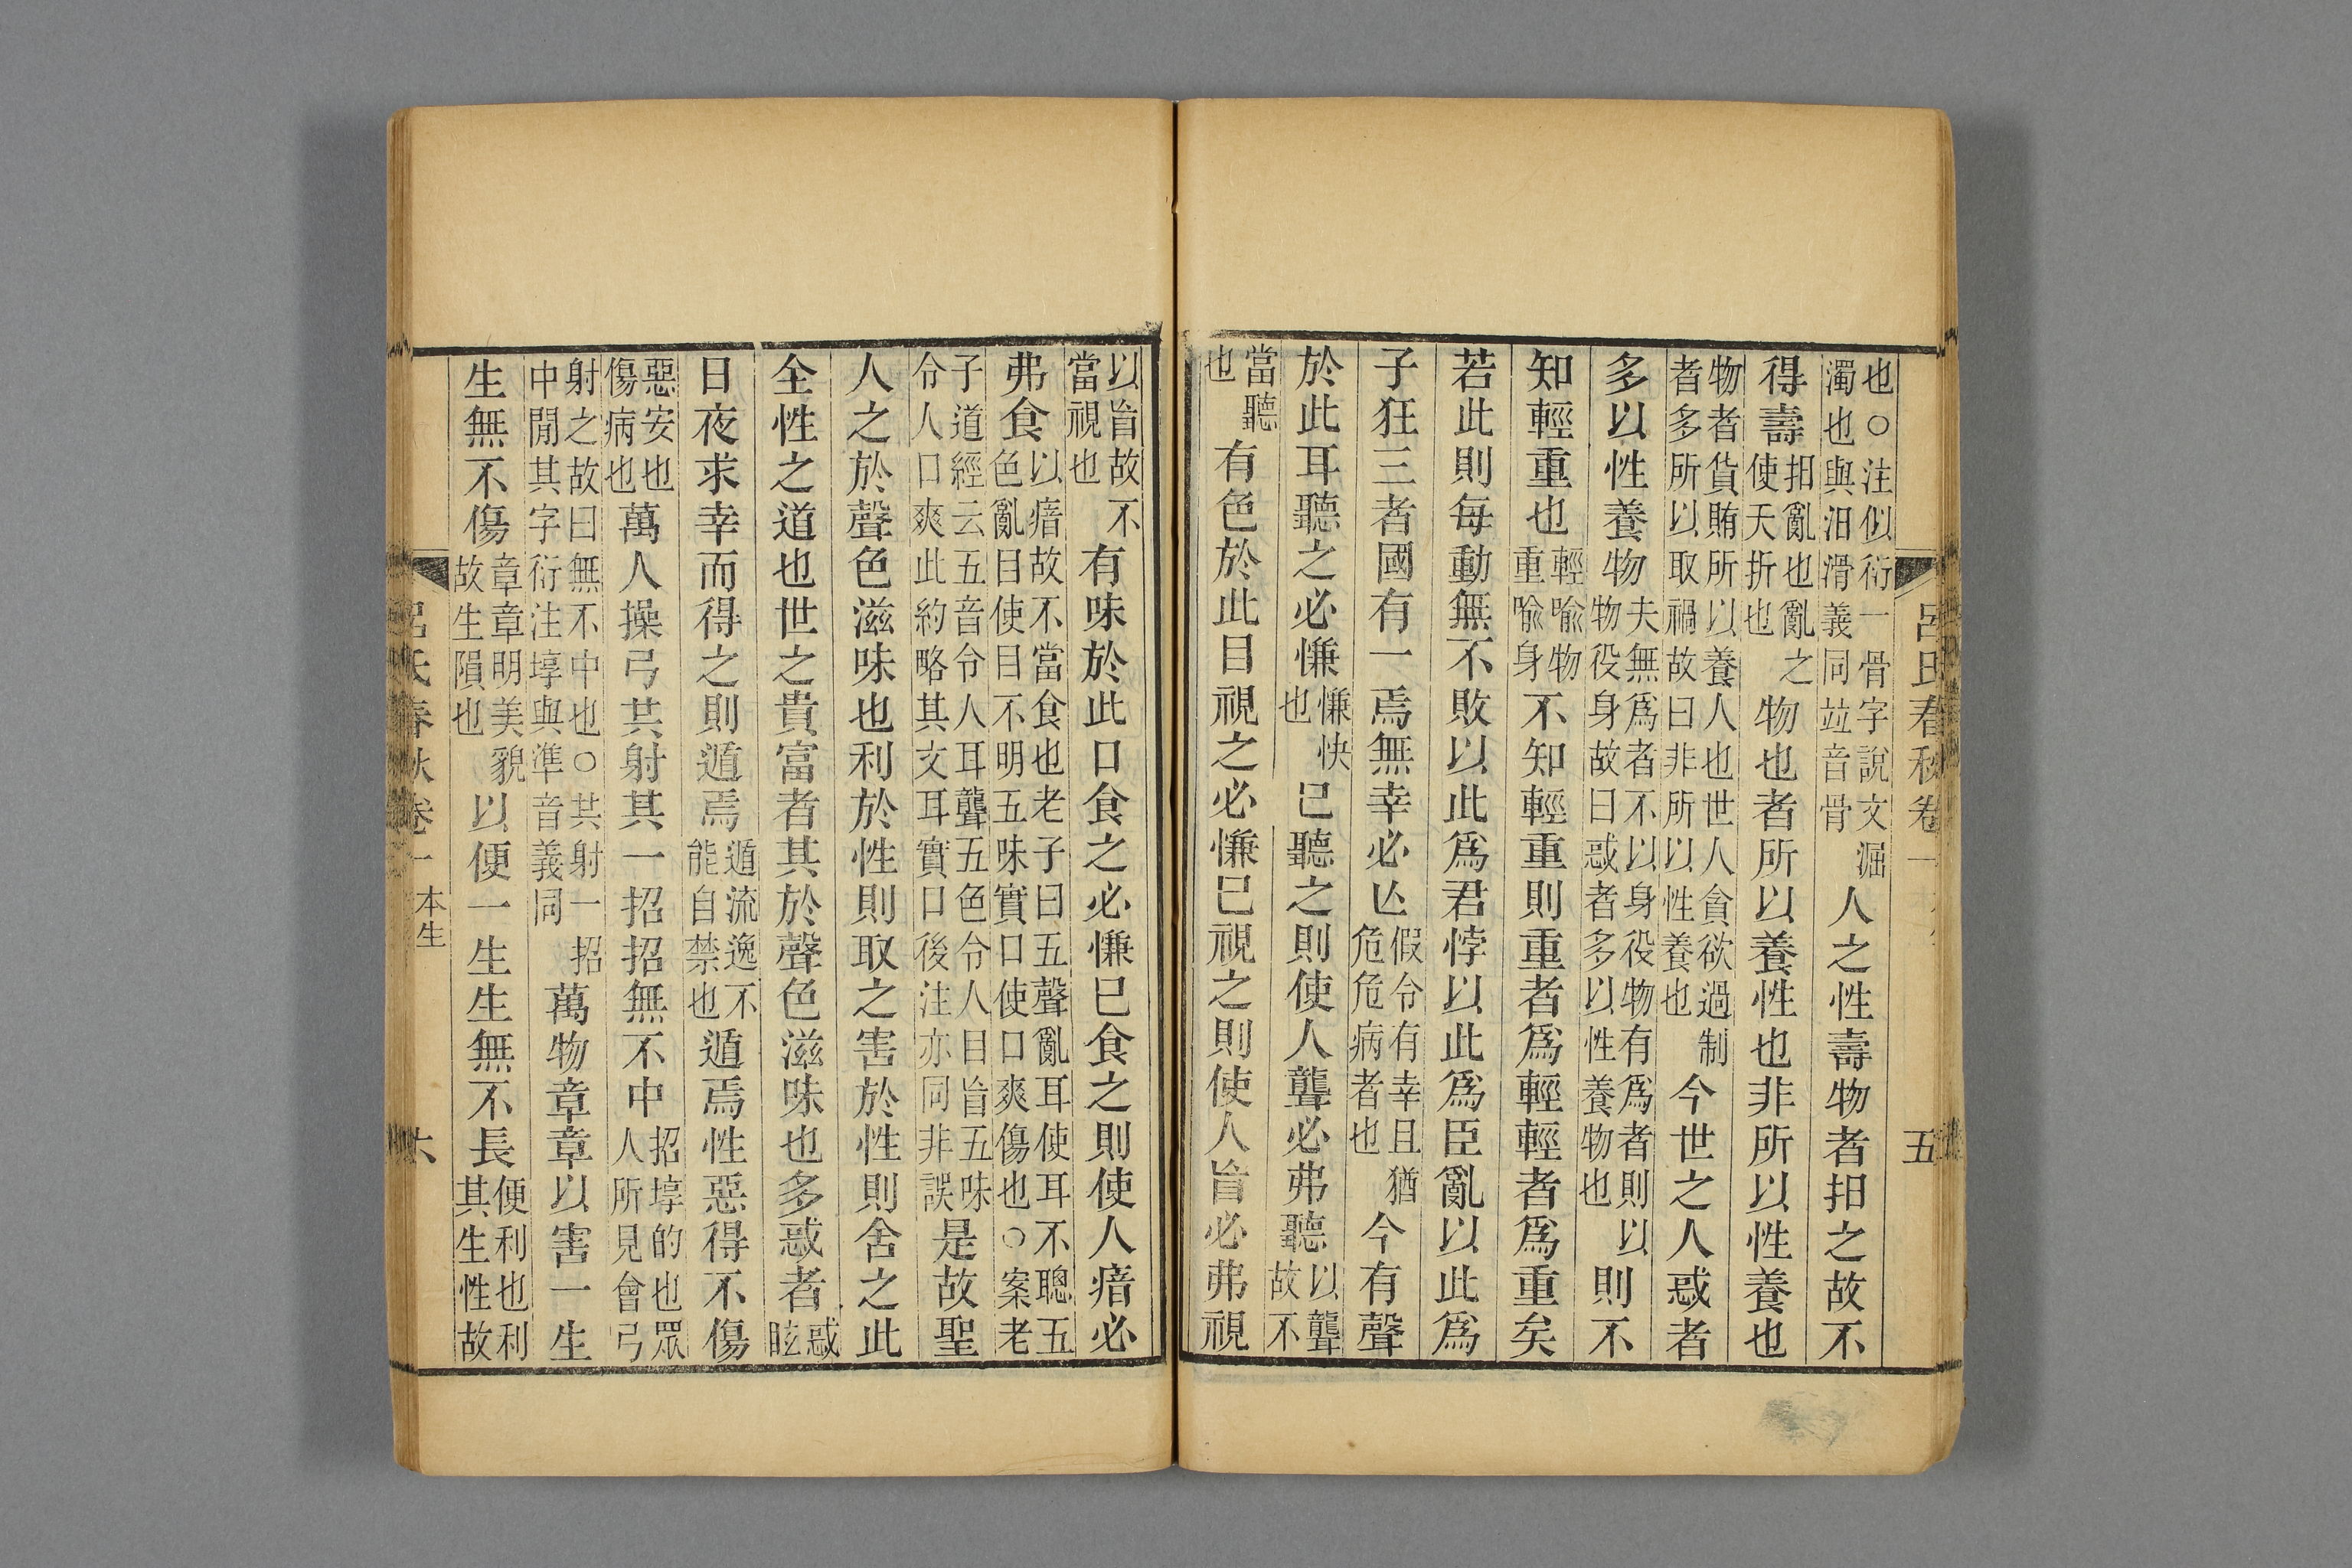 呂氏春秋卷一 五
也○注似衍一骨字說文淈濁也與汩滑義同竝音骨人之性壽物者抇之故不
得壽抇亂也亂之使夭折也物也者所以養性也非所以性養也
物者貨賄所以養人也世人貪欲過制者多所以取禍故曰非所以性養也今世之人惑者
多以性養物夫無爲者不以身役物有爲者則以物役身故曰惑者多以性養物也則不
知輕重也輕喻物重喻身不知輕重則重者爲輕輕者爲重矣
若此則每動無不敗以此爲君悖以此爲臣亂以此爲
子狂三者國有一焉無幸必亾假令有幸且猶危危病者也今有聲
於此耳聽之必慊慊快也已聽之則使人聾必弗聽以聾故不
當聽也有色於此目視之必慊已視之則使人盲必弗視
以盲故不當視也有味於此口食之必慊已食之則使人瘖必
弗食以瘖故不當食也老子曰五聲亂耳使耳不聰五色亂目使目不明五味實口使口爽傷也○案老
子道經云五音令人耳聾五色令人目盲五味令人口爽此約略其文耳實口後注亦同非誤是故聖
人之於聲色滋味也利於性則取之害於性則舍之此
全性之道也世之貴富者其於聲色滋味也多惑者惑眩
日夜求幸而得之則遁焉遁流逸不能自禁也遁焉性惡得不傷
惡安也傷病也萬人操弓共射其一招招無不中招埻的也眾人所見會弓
射之故曰無不中也○共射一招中閒其字衍注埻與準音義同萬物章章以害一生
生無不傷章章明美貌故生隕也以便一生生無不長便利也利其生性故
呂氏春秋卷一 本生 六